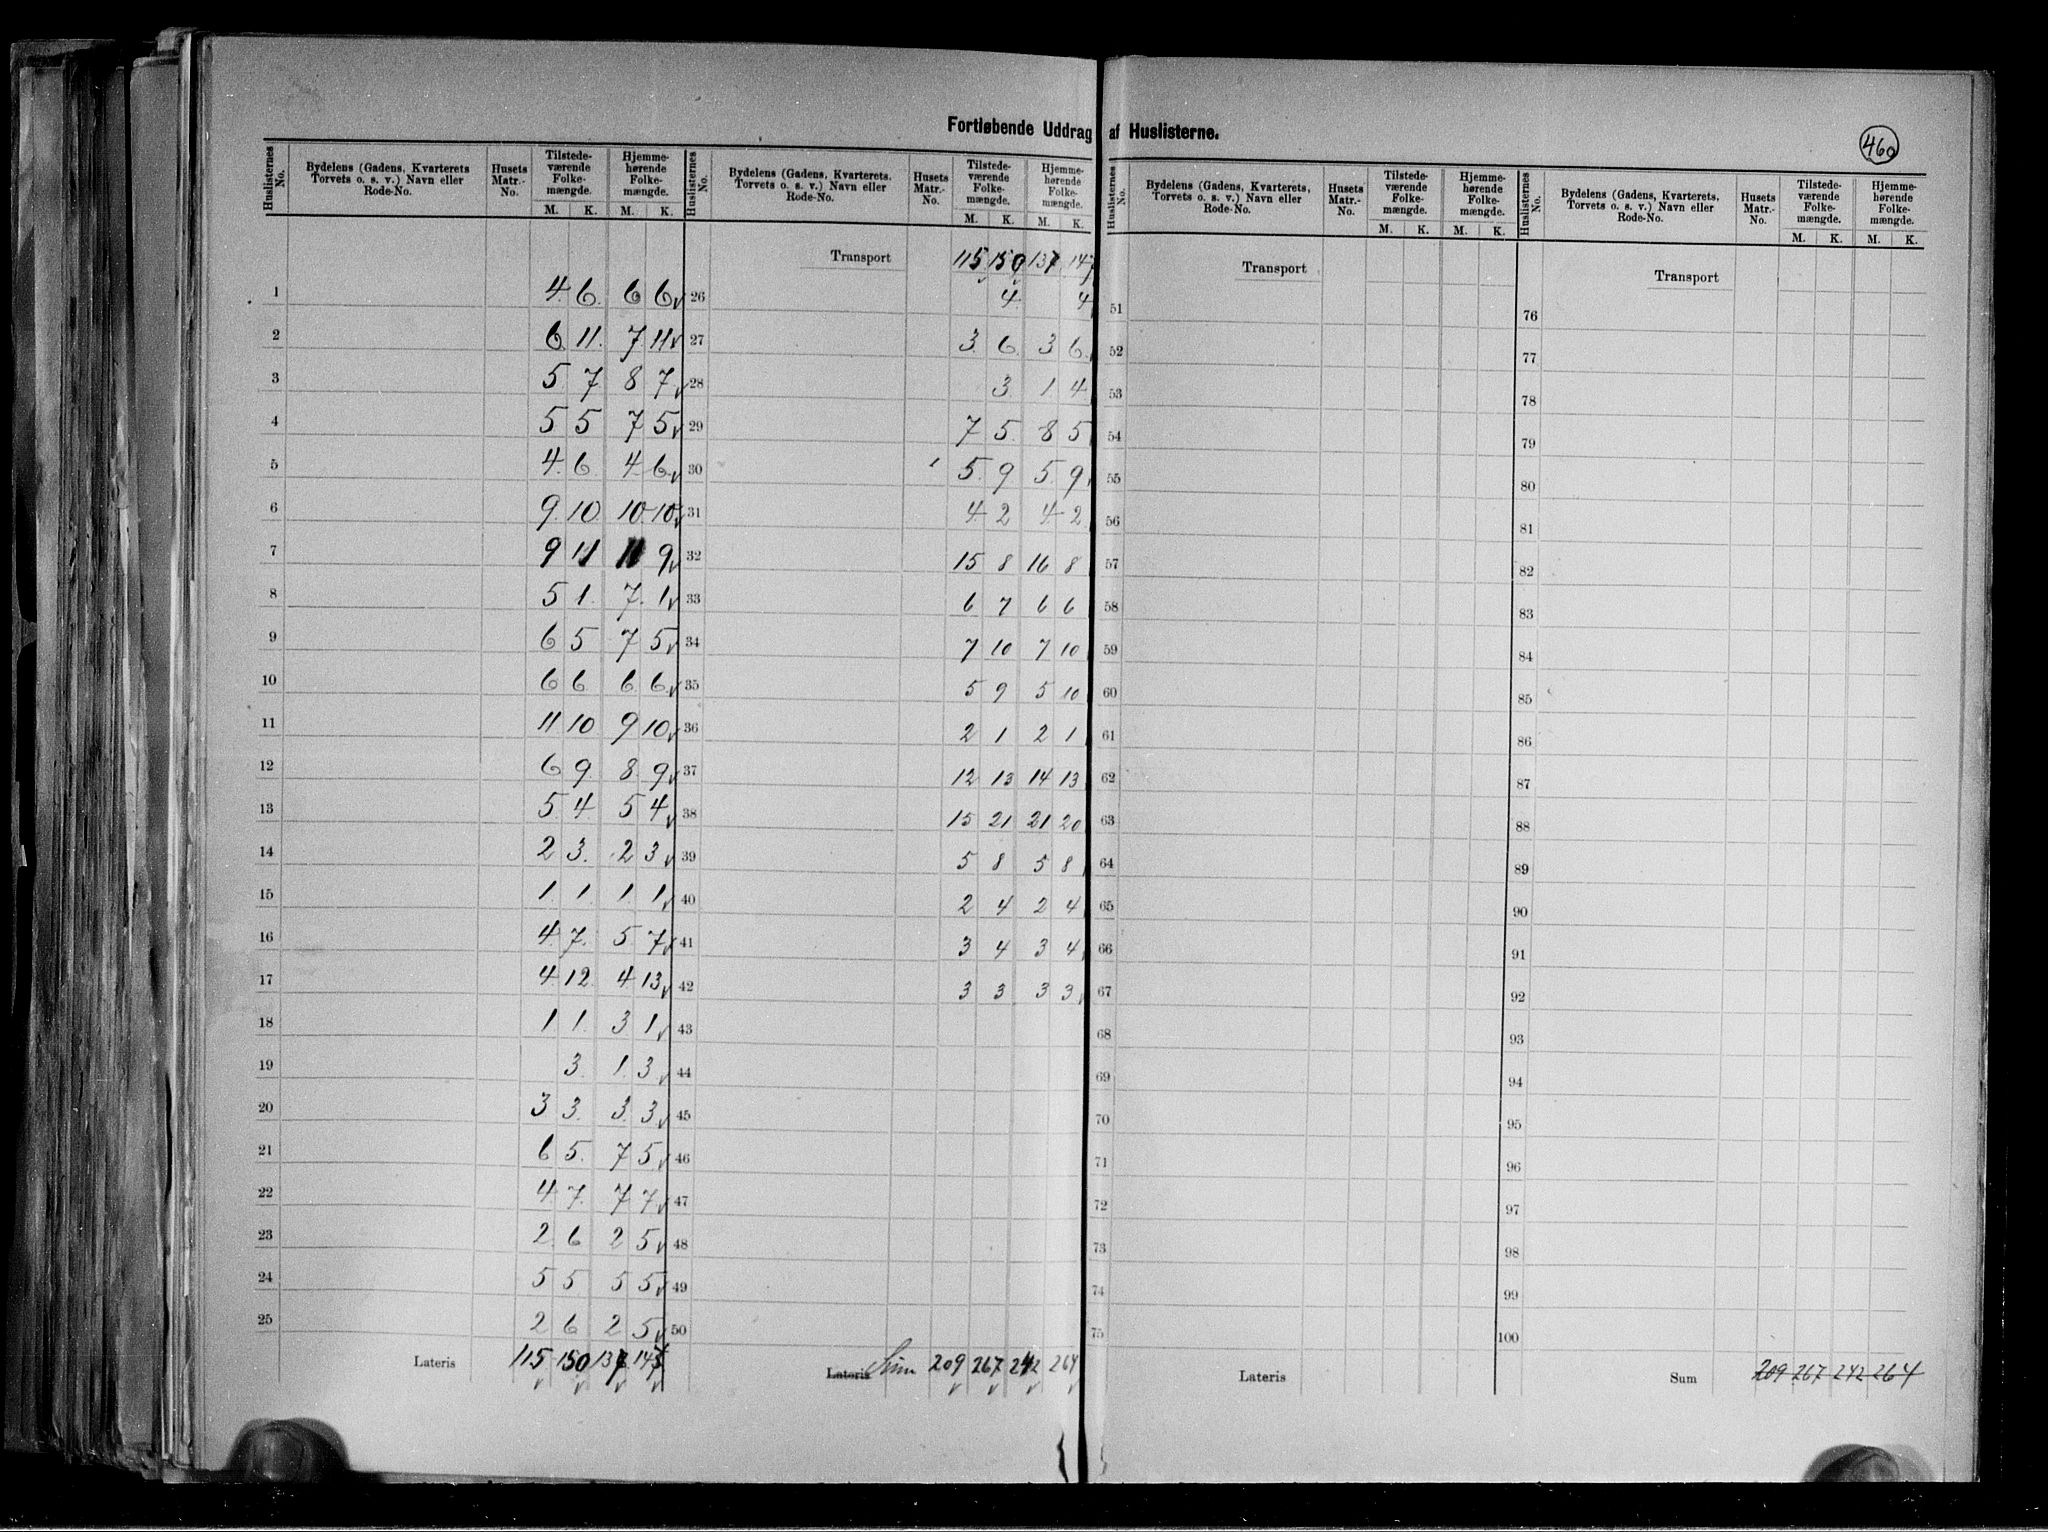 Fortløbende Uddrag af Huslisterne.
460
Huslisternes No. | Bydelens (Gadens, Kvarterets Torvets o. s. v.) Navn eller Rode-No. | Husets Matr.-No. | Tilstede-værende Folke-mængde. M. K. | Hjemme-hørende Folke-mængde. M. K.
1 4. 6. 6 6
2 6 11. 7. 11
3 5. 7. 8 7.
4 5 5 7 5
5 4. 6. 4. 6.
6 9. 10. 10. 10.
7 9 11 11 9
8 5 1. 7. 1.
9 6 5 7 5
10 6 6. 6. 6.
11 11 10 9 10
12 6 9. 8. 9
13 5. 4. 5 4
14 2 3. 2 3
15 1. 1. 1. 1.
16 4. 7. 5. 7
17 4. 12. 4. 13
18 1 1. 3 1
19 3. 1. 3
20 3 3. 3. 3
21 6 5. 7 5
22 4. 7. 7. 7.
23 2. 6 2 5
24 5 5 5 5
25 2 6 2 5
Lateris 115 150 137 147
Huslisternes No. | Bydelens (Gadens, Kvarterets, Torvets o. s. v.) Navn eller Rode-No. | Husets Matr.-No. | Tilstede-værende Folke-mængde. M. K. | Hjemme-hørende Folke-mængde. M. K.
Transport 115 150 137 147
26 4. 4
27 3. 6. 3 6.
28 3 1. 4
29 7 5. 8 5
30 5. 9 5. 9
31 4. 2 4. 2
32 15 8 16 8
33 6 7 6 6
34 7 10 7 10
35 5 9 5 10
36 2 1 2 1
37 12 13 14 13
38 15 21 21 20
39 5 8 5 8
40 2 4 2 4
41 3 4 3 4
42 3 3 3 3
43
44
45
46
47
48
49
50
Lateris Sum 209 267 242 264
Huslisternes No. | Bydelens (Gadens, Kvarterets, Torvets o. s. v.) Navn eller Rode-No. | Husets Matr.-No. | Tilstede-værende Folke-mængde. M. K. | Hjemme-hørende Folke-mængde. M. K.
Transport
51
52
53
54
55
56
57
58
59
60
61
62
63
64
65
66
67
68
69
70
71
72
73
74
75
Lateris
Huslisternes No. | Bydelens (Gadens, Kvarterets, Torvets o. s. v.) Navn eller Rode-No. | Husets Matr.-No. | Tilstede-værende Folke-mængde. M. K. | Hjemme-hørende Folke-mængde. M. K.
Transport
76
77
78
79
80
81
82
83
84
85
86
87
88
89
90
91
92
93
94
95
96
97
98
99
100
Sum 209 267 242 264